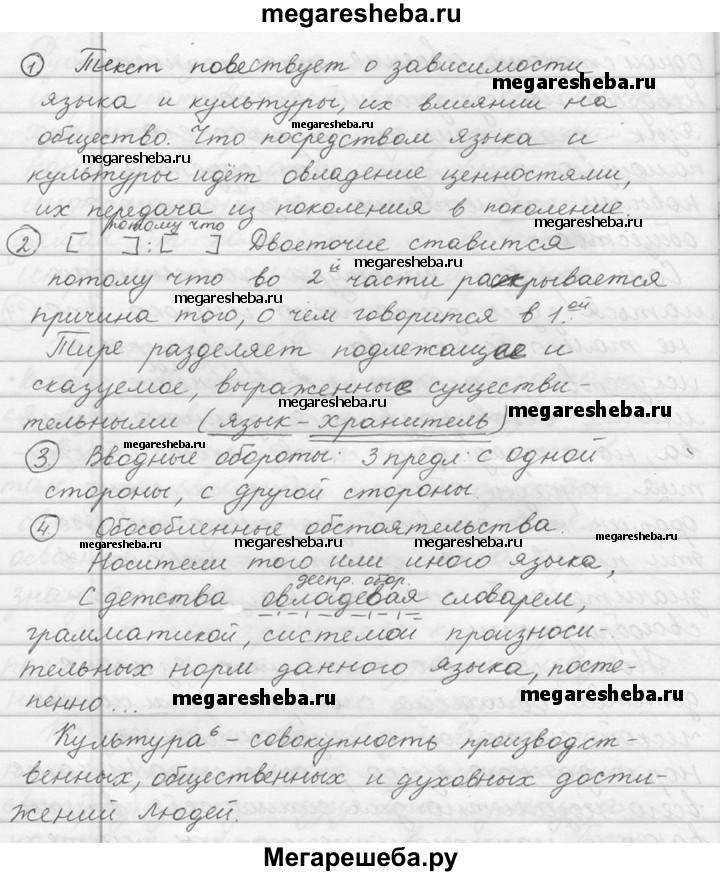 megaresheba.ru
① Текст повествует о зависимости
megaresheba.ru
языка и культуры, их влиянии на
megaresheba.ru
общество. Что посредством языка и
megaresheba.ru
культуры идёт овладение ценностями,
их передача из поколения в поколение.
потому что
② [ ] : [ ] Двоеточие ставится
megaresheba.ru
потому что во 2й части раскрывается
megaresheba.ru
причина того, о чем говорится в 1.ой
Тире разделяет подлежащее и
сказуемое, выраженные существи-
megaresheba.ru megaresheba.ru
тельными (язык - хранитель)
megaresheba.ru
③ Вводные обороты: 3 предл: с одной
стороны, с другой стороны.
④ Обособленные обстоятельства.
megaresheba.ru megaresheba.ru megaresheba.ru
Носители того или иного языка,
деепр. обор.
с детства овладевая словарем,
грамматикой, системой произноси-
тельных норм данного языка, посте-
пенно...
megaresheba.ru megaresheba.ru
Культура⁶ - совокупность производст-
венных, общественных и духовных дости-
жений людей.
Мегарешеба.ру